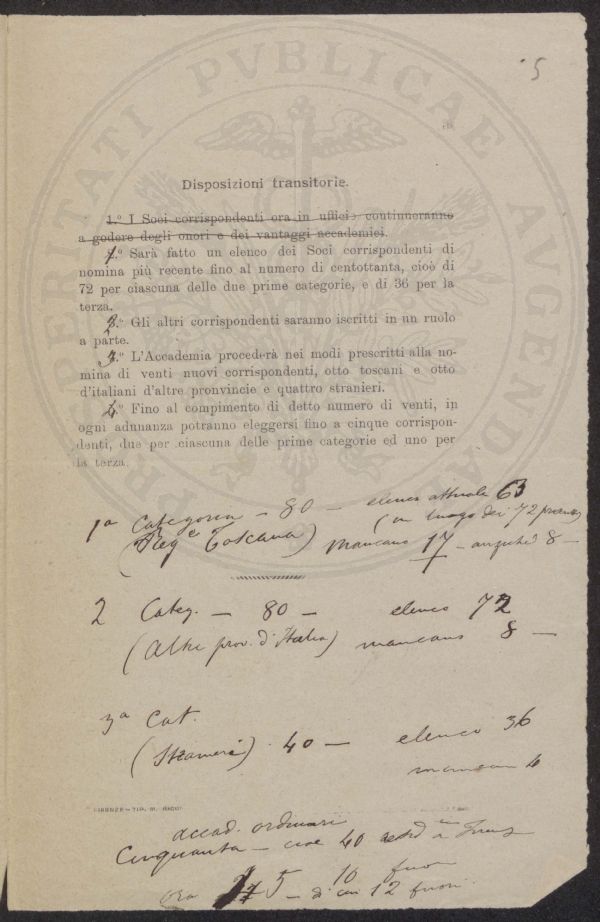 5
PROSPERITATI PVBLICAE AVGENDAE
Disposizioni transitorie.
1.º I Soci corrispondenti ora in ufficio continueranno
a godere degli onori e dei vantaggi accademici.
1.º Sarà fatto un elenco dei Soci corrispondenti di
nomina più recente fino al numero di centottanta, cioè di
72 per ciascuna delle due prime categorie, e di 36 per la
terza.
2.º Gli altri corrispondenti saranno iscritti in un ruolo
a parte.
3.º L'Accademia procederà nei modi prescritti alla no-
mina di venti nuovi corrispondenti, otto toscani e otto
d'italiani d'altre pronvincie e quattro stranieri.
4.º Fino al compimento di detto numero di venti, in
ogni adunanza potranno eleggersi fino a cinque corrispon-
denti, due per ciascuna delle prime categorie ed uno per
la terza.
1ª Categoria - 80 - elenco attuale 63
(in luogo dei 72
(Regᵉ Toscana) mancano 17 - anziché 8 -
2 Categ. - 80 - elenco 72
(Altre prov. d'Italia) mancano 8 -
3ª Cat.
(Stranieri) . 40 - elenco 36
mancan 4
FIRENZE - TIP. M. RICCI
accad. ordinari
Cinquanta - cioè 40
ora 5 - di cui 12 fuori
10 fuori